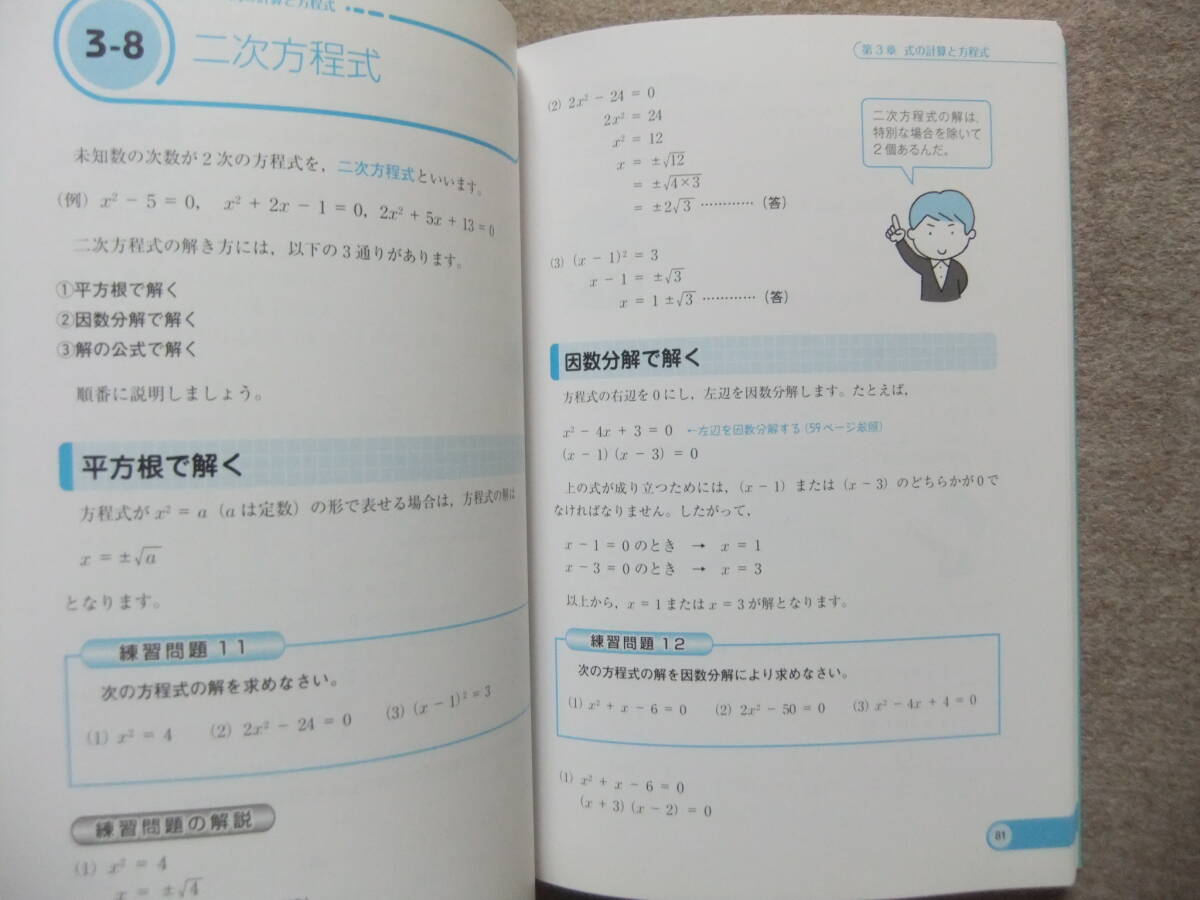 計算と方程式
3-8
二次方程式
未知数の次数が2次の方程式を，二次方程式といいます。
(例) x² − 5 = 0， x² + 2x − 1 = 0，2x² + 5x + 13 = 0
二次方程式の解き方には，以下の3通りがあります。
①平方根で解く
②因数分解で解く
③解の公式で解く
順番に説明しましょう。
平方根で解く
方程式がx² = a（aは定数）の形で表せる場合は，方程式の解は
x = ±√a
となります。
練習問題 11
次の方程式の解を求めなさい。
(1) x² = 4 (2) 2x² − 24 = 0 (3) (x − 1)² = 3
練習問題の解説
(1) x² = 4
x = ±√4
第3章 式の計算と方程式
(2) 2x² − 24 = 0
2x² = 24
x² = 12
x = ±√12
= ±√4×3
= ±2√3 …………（答）
二次方程式の解は，
特別な場合を除いて
2個あるんだ。
(3) (x − 1)² = 3
x − 1 = ±√3
x = 1 ±√3 …………（答）
因数分解で解く
方程式の右辺を0にし，左辺を因数分解します。たとえば，
x² − 4x + 3 = 0 ←左辺を因数分解する（59ページ参照）
(x − 1) (x − 3) = 0
上の式が成り立つためには，(x − 1) または (x − 3) のどちらかが0で
なければなりません。したがって，
x − 1 = 0 のとき → x = 1
x − 3 = 0 のとき → x = 3
以上から，x = 1 または x = 3 が解となります。
練習問題 12
次の方程式の解を因数分解により求めなさい。
(1) x² + x − 6 = 0 (2) 2x² − 50 = 0 (3) x² − 4x + 4 = 0
(1) x² + x − 6 = 0
(x + 3) (x − 2) = 0
81